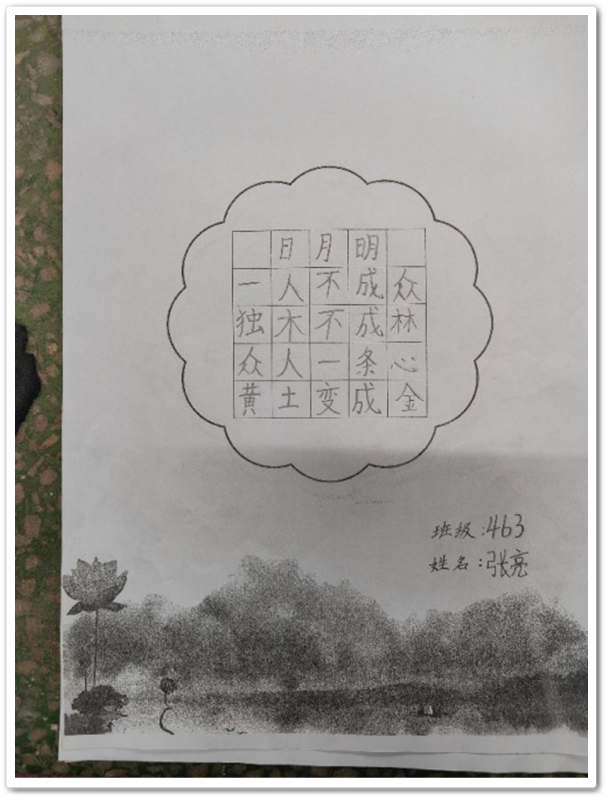 日月明
一人不成众
独木不成林
众人一条心
黄土变成金
班级:463
姓名:张亮